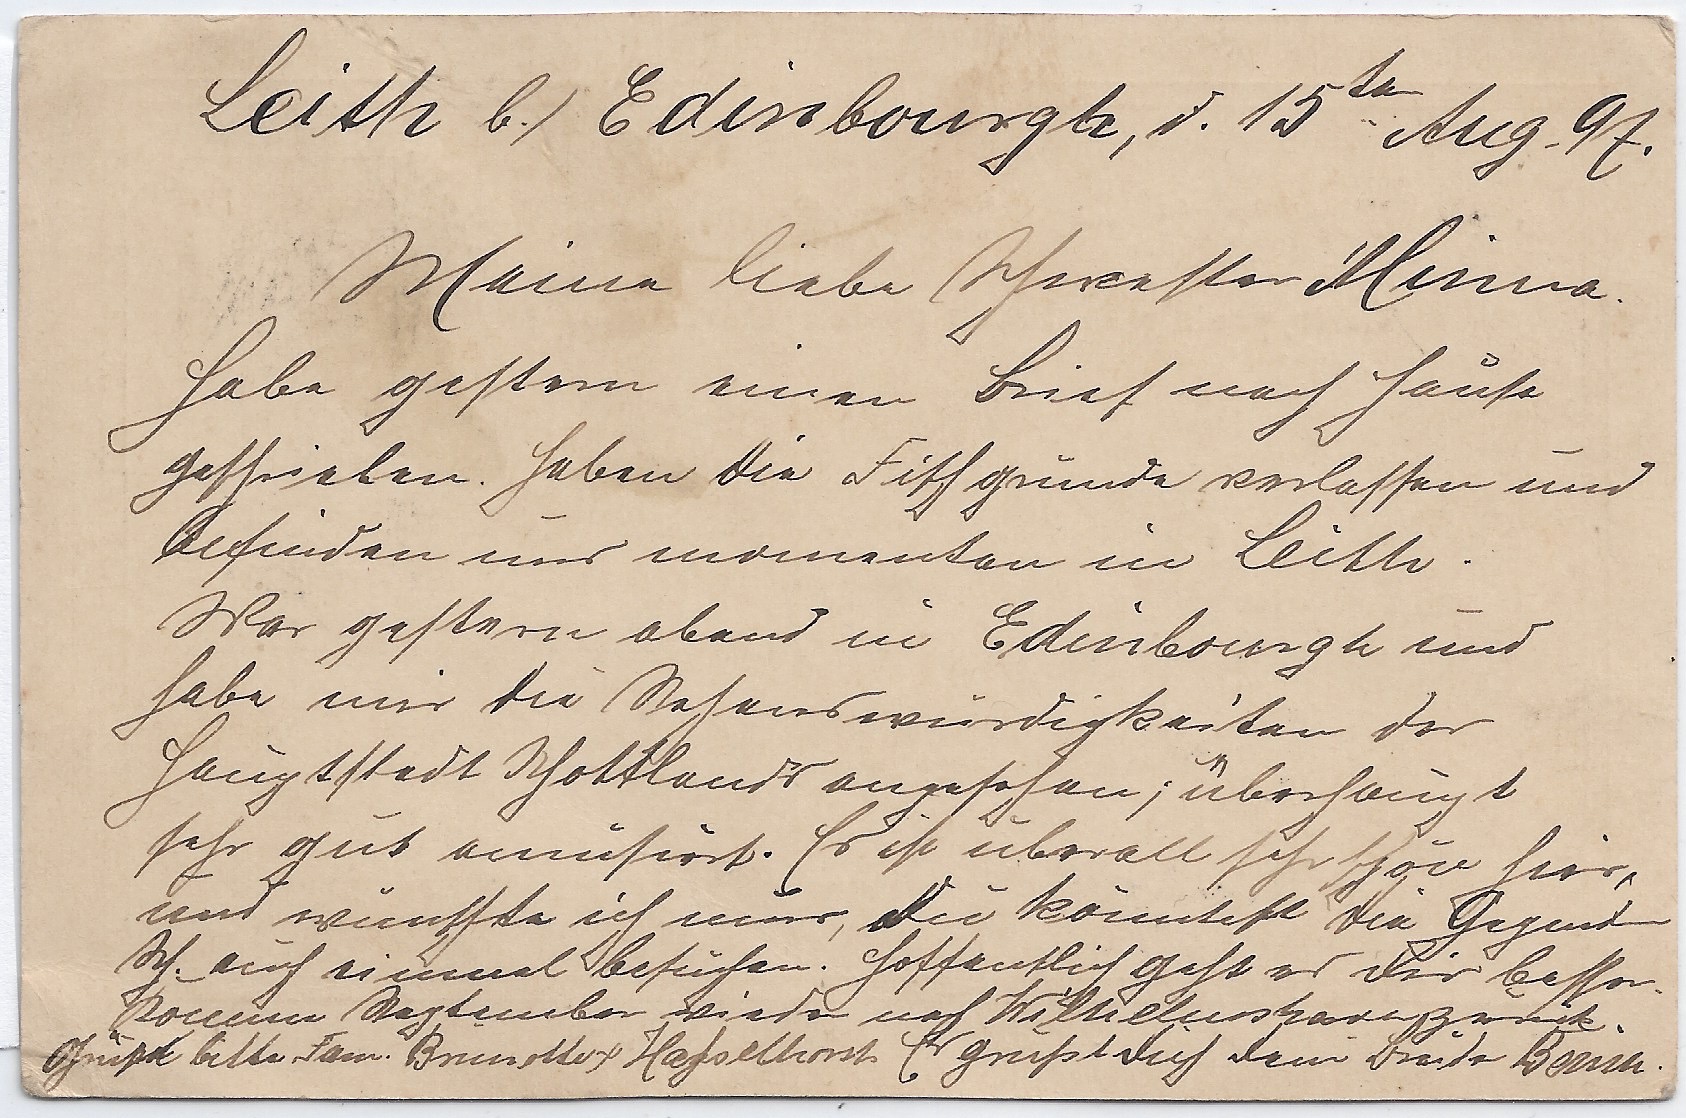 Leith b./ Edinbourgh, d. 15ten Aug. 97.
Meine liebe Schwester Minna.
Habe gestern einen Brief nach Hause
geschrieben. Haben die Fischgründe verlassen und
befinden uns momentan in Leith.
War gestern abend in Edinbourgh und
habe mir die Sehenswürdigkeiten der
Hauptstadt Schottlands angesehen; überhaupt
sehr gut amüsirt. Es ist überall sehr schön hier,
und wünschte ich nur, du könntest die Gegend
Sch. auch einmal besuchen. Hoffentlich geht es dir besser.
Komme September wieder nach Wilhelmshaven zurück.
Grüße bitte Fam. Hasselhorst Es grüßt dich dein Bruder